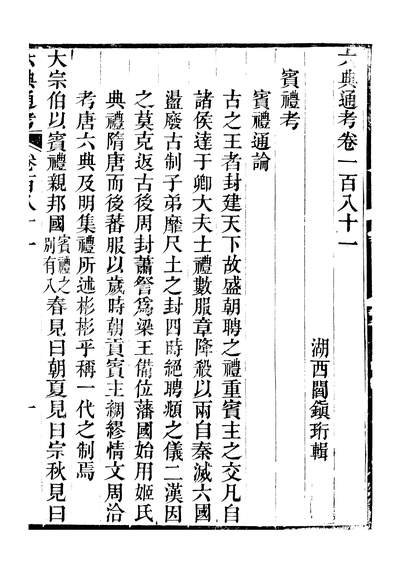 六典通考卷一百八十一
湖西閻鎮珩輯
賓禮考
賓禮通論
古之王者封建天下故盛朝聘之禮重賓主之交凡自
諸侯達于卿大夫士禮數服章降殺以兩自秦滅六國
盪廢古制子弟靡尺土之封四時絕聘頫之儀二漢因
之莫克返古後周封蕭詧爲梁王備位藩國始用姬氏
典禮隋唐而後蕃服以歲時朝貢賓主綢繆情文周洽
考唐六典及明集禮所述彬彬乎稱一代之制焉
大宗伯以賓禮親邦國賓禮之別有八春見曰朝夏見曰宗秋見曰
六典通考 卷百八十一 一